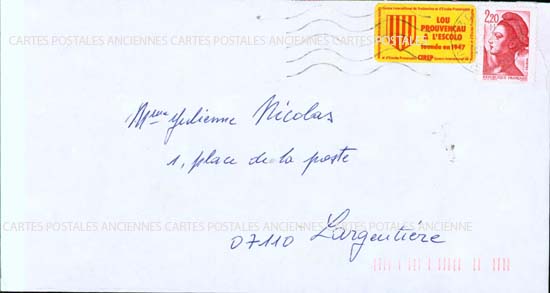 LOU
PROUVENÇAU
À L'ESCOLO
foundado en 1947
CIREP
2,20
RÉPUBLIQUE FRANÇAISE
CARTES POSTALES ANCIENNES CARTES POSTALES ANCIENNES CARTES POSTALES ANCIENNE
Mme Julienne Nicolas
1, place de la poste
CARTES POSTALES ANCIENNES CARTES POSTALES ANCIENNES CARTES POSTALES ANCIENNE
07110 Largentière